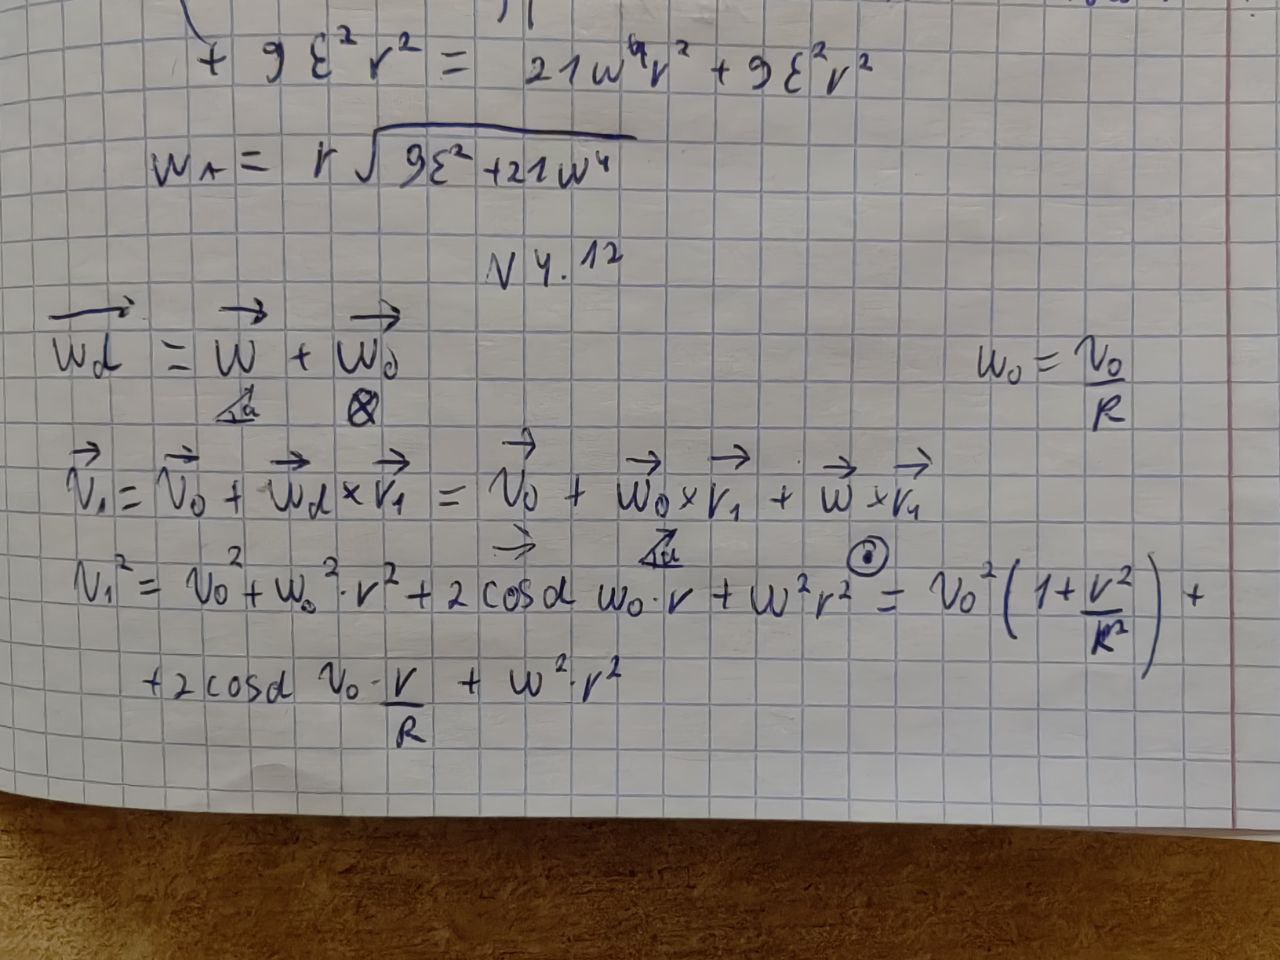 + 9 ε² r² = 21w⁴r² + 9ε²r²
w_A = r√(9ε² + 21w⁴)
N 4.12
w⃗_d = w⃗ + w⃗₀
w₀ = v₀/R
⊗
v⃗₁ = v⃗₀ + w⃗_d × r⃗₁ = v⃗₀ + w⃗₀ × r⃗₁ + w⃗ × r⃗₁
→ ⊙
v₁² = v₀² + w₀² · r² + 2 cos α w₀ · r + w² r² = v₀² (1 + r²/R²) +
+ 2 cos α v₀ · r/R + w² · r²